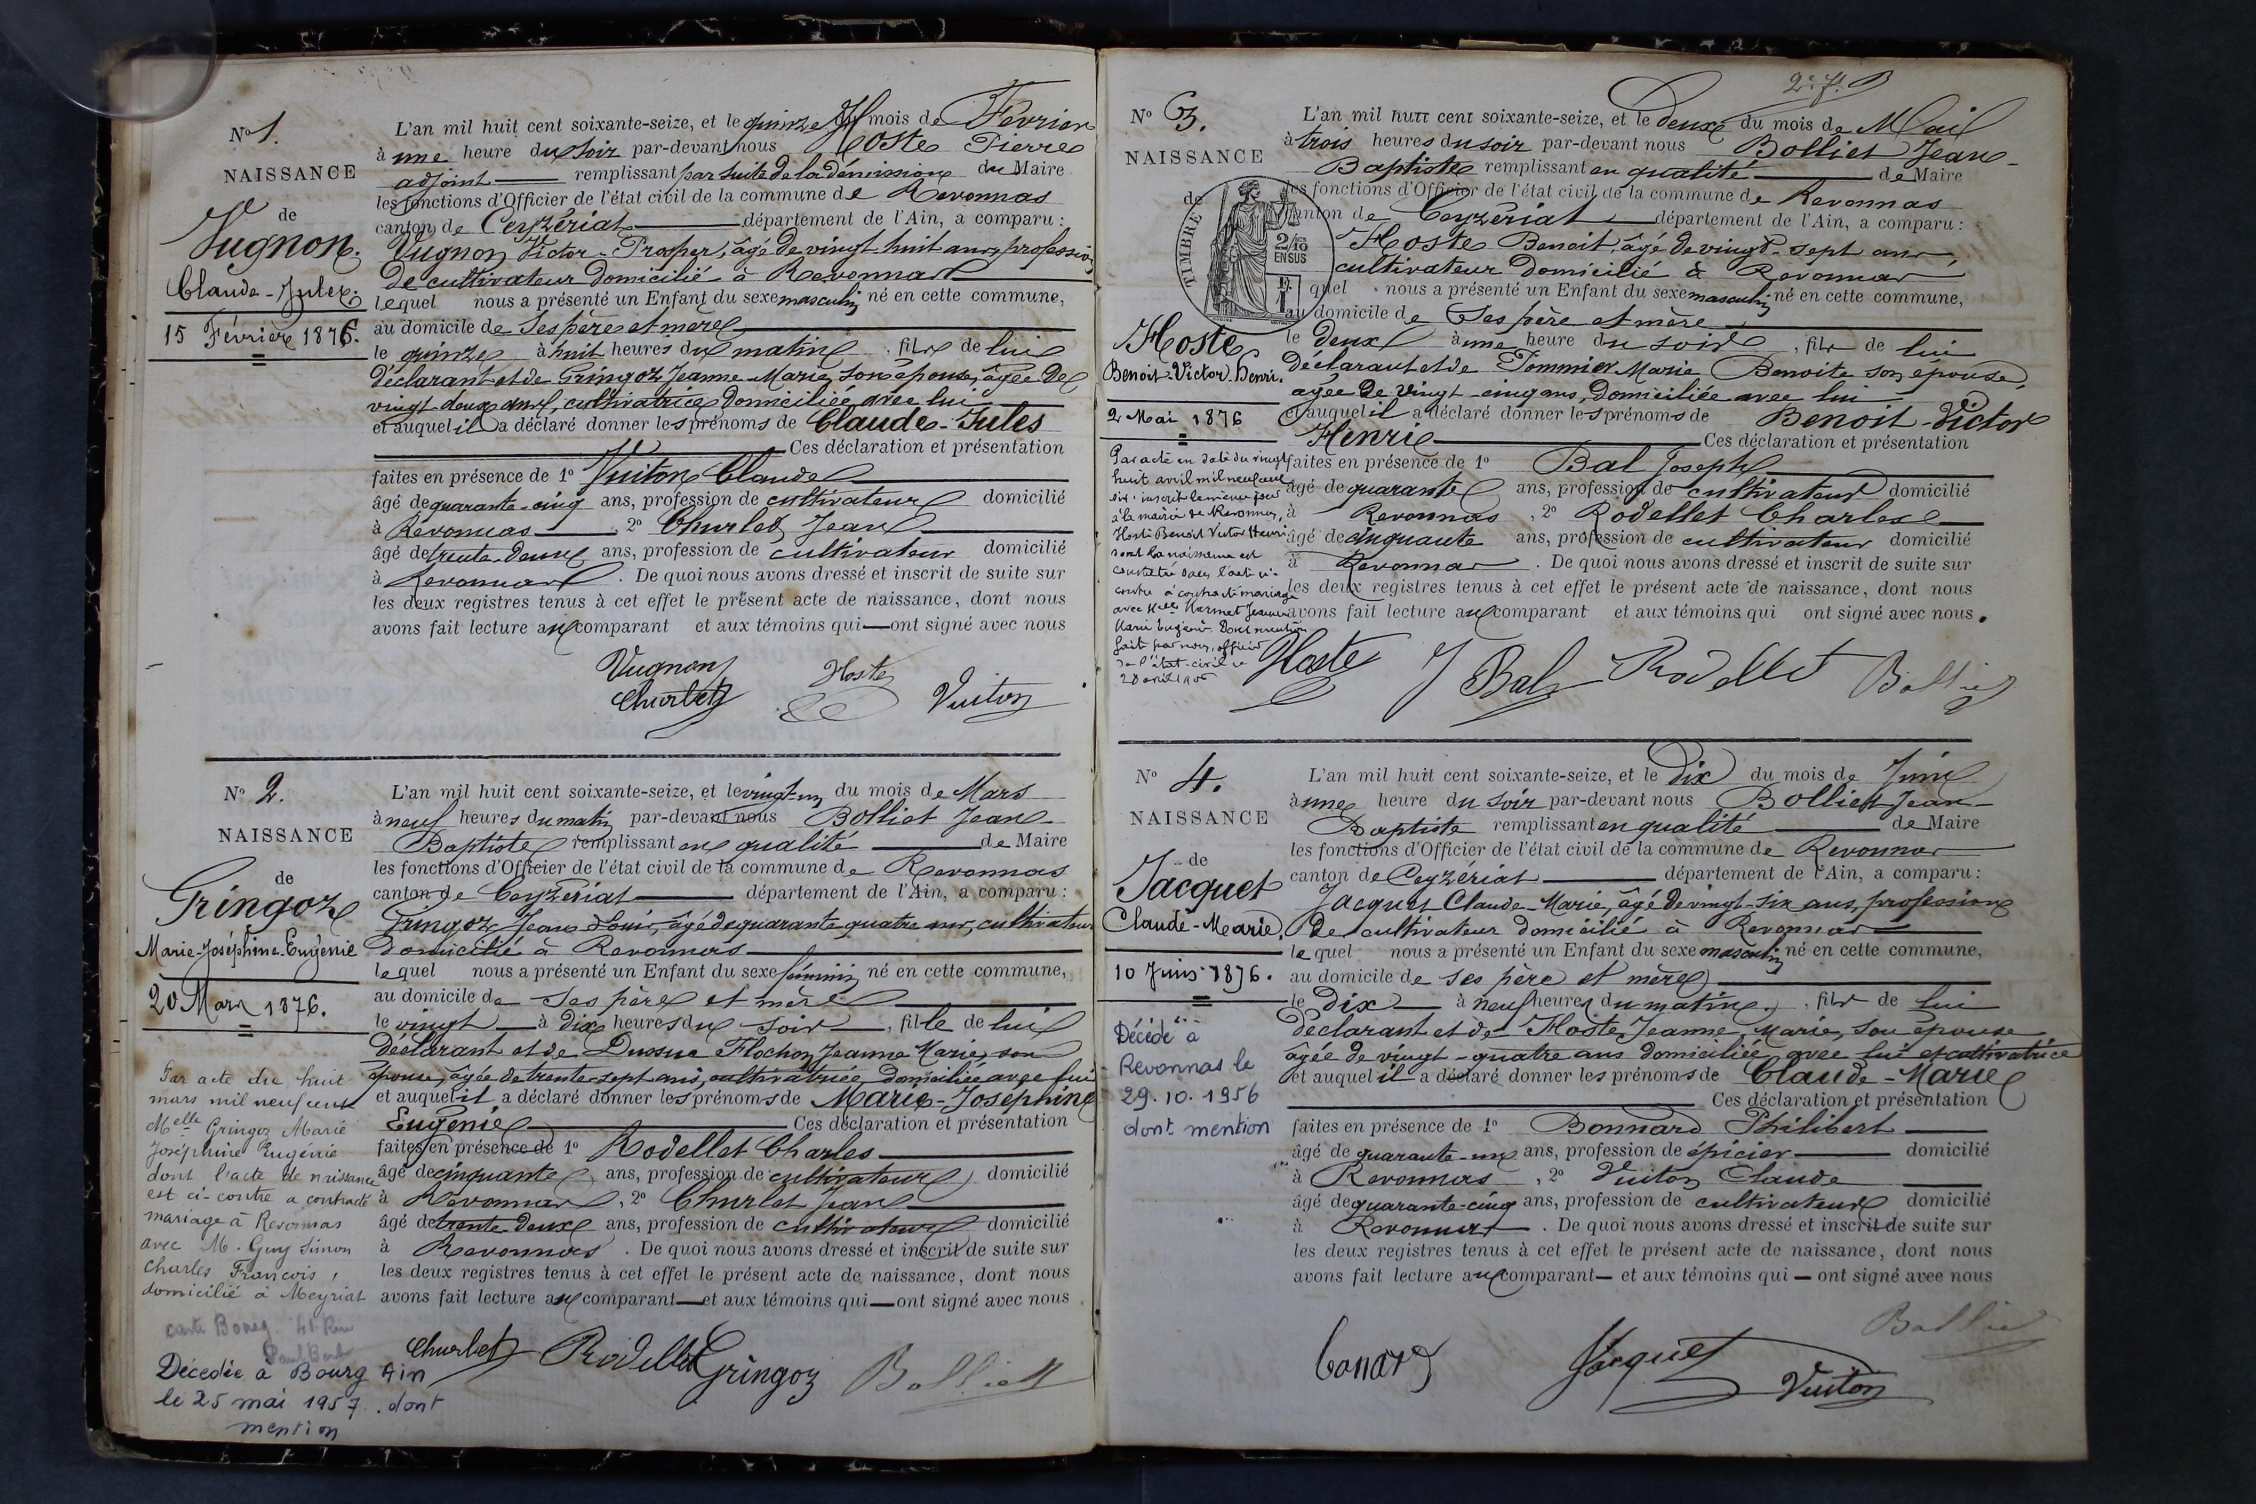 No 1.
NAISSANCE
de
Vugnon.
Claude-Jules.
15 Février 1876.
L'an mil huit cent soixante-seize, et le quinze du mois de Février
à une heure du soir par-devant nous Hoste Pierre
adjoint remplissant par suite de la démission du Maire
les fonctions d'Officier de l'état civil de la commune de Revonnas
canton de Ceyzériat département de l'Ain, a comparu :
Vugnon Victor-Prosper, âgé de vingt-huit ans, profession
de cultivateur domicilié à Revonnas
lequel nous a présenté un Enfant du sexe masculin né en cette commune,
au domicile de ses père et mère
le quinze à huit heures du matin, fils de lui
déclarant et de Gringoz Jeanne-Marie, son épouse, âgée de
vingt-deux ans, cultivatrice domiciliée avec lui
et auquel il a déclaré donner les prénoms de Claude-Jules
Ces déclaration et présentation
faites en présence de 1o Vuiton Claude
âgé de quarante-cinq ans, profession de cultivateur domicilié
à Revonnas, 2o Churlet Jean
âgé de trente-deux ans, profession de cultivateur domicilié
à Revonnas. De quoi nous avons dressé et inscrit de suite sur
les deux registres tenus à cet effet le présent acte de naissance, dont nous
avons fait lecture au comparant et aux témoins qui ont signé avec nous
Vugnon Hoste
Churlet Vuiton
No 2.
NAISSANCE
de
Gringoz
Marie-Joséphine-Eugénie
20 Mars 1876.
Par acte du huit
mars mil neuf cent
Melle Gringoz Marie
Joséphine Eugénie
dont l'acte de naissance
est ci-contre a contracté
mariage à Revonnas
avec M. Guy Simon
Charles François,
domicilié à Meyriat
Décédée à Bourg Ain
le 25 mai 1957. dont
mention
L'an mil huit cent soixante-seize, et le vingt-un du mois de Mars
à neuf heures du matin par-devant nous Bolliet Jean-
Baptiste remplissant en qualité de Maire
les fonctions d'Officier de l'état civil de la commune de Revonnas
canton de Ceyzériat département de l'Ain, a comparu :
Gringoz Jean Louis, âgé de quarante quatre ans, cultivateur
domicilié à Revonnas
lequel nous a présenté un Enfant du sexe féminin né en cette commune,
au domicile de ses père et mère
le vingt à dix heures du soir, fille de lui
déclarant et de Ducsuc Flochon Jeanne Marie, son
épouse, âgée de trente-sept ans, cultivatrice, domiciliée avec lui
et auquel il a déclaré donner les prénoms de Marie-Joséphine
Eugénie Ces déclaration et présentation
faites en présence de 1o Rodellet Charles
âgé de cinquante ans, profession de cultivateur domicilié
à Revonnas, 2o Churlet Jean
âgé de trente-deux ans, profession de cultivateur domicilié
à Revonnas. De quoi nous avons dressé et inscrit de suite sur
les deux registres tenus à cet effet le présent acte de naissance, dont nous
avons fait lecture au comparant et aux témoins qui ont signé avec nous
Churlet Rodellet Gringoz Bolliet
No 3.
NAISSANCE
de
TIMBRE
2/10 EN SUS
Hoste
Benoit-Victor-Henri.
2 Mai 1876
Par acte en date du vingt
huit avril mil neuf cent
six inscrit le même jour
à la mairie de Revonnas,
Hoste Benoit Victor Henri
dont la naissance est
constatée dans l'acte ci-
contre a contracté mariage
avec Melle Jeanne
Marie Eugénie. Dont mention
faite par nous, officier
de l'état-civil le
28 avril 1906
L'an mil huit cent soixante-seize, et le deux du mois de Mai
à trois heures du soir par-devant nous Bolliet Jean-
Baptiste remplissant en qualité de Maire
les fonctions d'Officier de l'état civil de la commune de Revonnas
canton de Ceyzériat département de l'Ain, a comparu :
Hoste Benoit âgé de vingt-sept ans,
cultivateur domicilié à Revonnas
quel nous a présenté un Enfant du sexe masculin né en cette commune,
au domicile de ses père et mère
le deux à une heure du soir, fils de lui
déclarant et de Pommier Marie Benoite son épouse,
âgée de vingt-cinq ans, domiciliée avec lui
et auquel il a déclaré donner les prénoms de Benoit-Victor
Henri Ces déclaration et présentation
faites en présence de 1o Bal Joseph
âgé de quarante ans, profession de cultivateur domicilié
à Revonnas, 2o Rodellet Charles
âgé de cinquante ans, profession de cultivateur domicilié
à Revonnas. De quoi nous avons dressé et inscrit de suite sur
les deux registres tenus à cet effet le présent acte de naissance, dont nous
avons fait lecture au comparant et aux témoins qui ont signé avec nous.
Hoste J Bal Rodellet Bolliet
No 4.
NAISSANCE
de
Jacquet
Claude-Marie.
10 Juin 1876.
Décédé à
Revonnas le
29.10.1956
dont mention
L'an mil huit cent soixante-seize, et le dix du mois de Juin
à une heure du soir par-devant nous Bolliet Jean-
Baptiste remplissant en qualité de Maire
les fonctions d'Officier de l'état civil de la commune de Revonnas
canton de Ceyzériat département de l'Ain, a comparu :
Jacquet Claude-Marie, âgé de vingt-six ans, profession
de cultivateur domicilié à Revonnas
lequel nous a présenté un Enfant du sexe masculin né en cette commune,
au domicile de ses père et mère
le dix à neuf heures du matin, fils de lui
déclarant et de Hoste Jeanne Marie, son épouse
âgée de vingt-quatre ans domiciliée avec lui et cultivatrice
et auquel il a déclaré donner les prénoms de Claude-Marie
Ces déclaration et présentation
faites en présence de 1o Bonnard Philibert
âgé de quarante-un ans, profession de épicier domicilié
à Revonnas, 2o Vuiton Claude
âgé de quarante-cinq ans, profession de cultivateur domicilié
à Revonnas. De quoi nous avons dressé et inscrit de suite sur
les deux registres tenus à cet effet le présent acte de naissance, dont nous
avons fait lecture au comparant et aux témoins qui ont signé avec nous
Bolliet
bonard Jacquet Vuiton